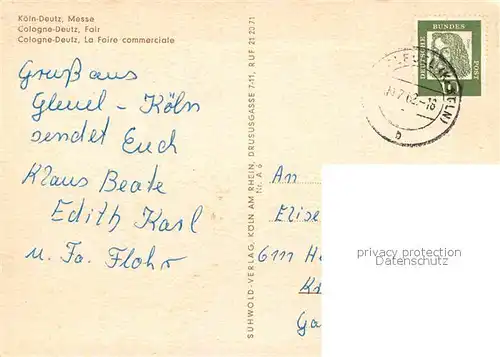 Köln-Deutz, Messe
Cologne-Deutz, Fair
Cologne-Deutz, La Foire commerciale
DEUTSCHE
BUNDES
POST
Gruß aus
Gleuel - Köln
sendet Euch
Klaus Beate
Edith Karl
u. Fa. Flohr
SUHWOLD-VERLAG, KÖLN AM RHEIN, DRUSUSGASSE 7-11, RUF 21 23 71
Nr. A 6
b
An
Elise
6111
privacy protection
Datenschutz